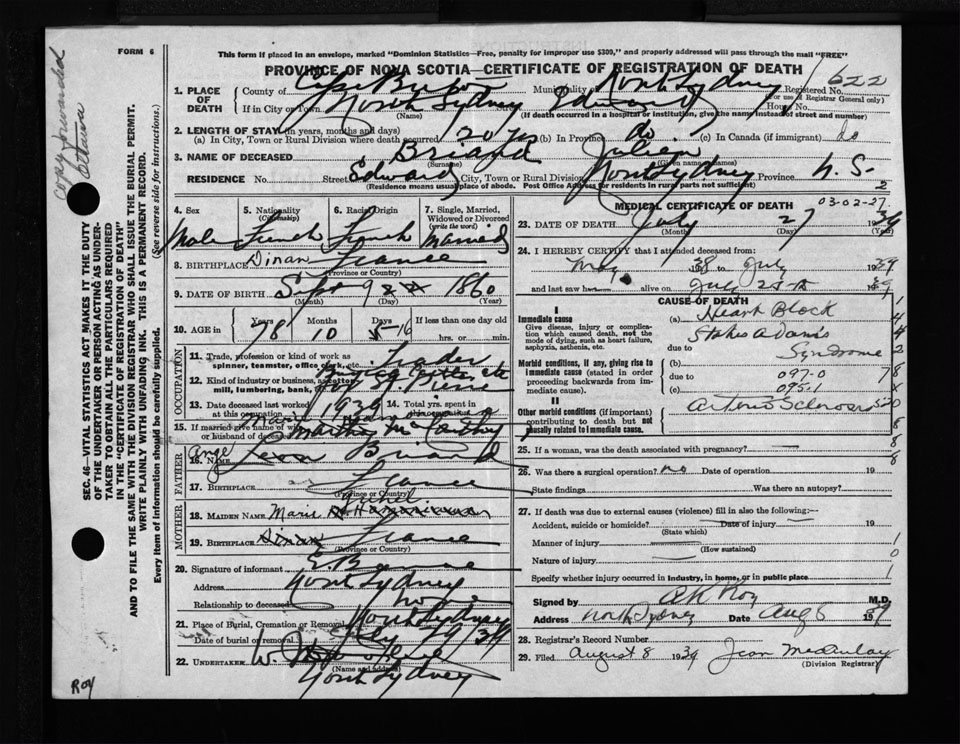 FORM 6
This form if placed in an envelope, marked "Dominion Statistics—Free, penalty for improper use $300," and properly addressed will pass through the mail "FREE"
PROVINCE OF NOVA SCOTIA—CERTIFICATE OF REGISTRATION OF DEATH
622
Copy forwarded
Ottawa
1. PLACE OF DEATH
County of Cape Breton Municipality North Sydney Registered No.
(For use of Registrar General only)
If in City or Town North Sydney Edward House No.
(Name) (If death occurred in a hospital or institution, give the name instead of street and number)
2. LENGTH OF STAY (in years, months and days)
(a) In City, Town or Rural Division where death occurred 20 yrs (b) In Province do (c) In Canada (if immigrant) do
3. NAME OF DECEASED Briand Julien
(Surname) (Given name or names)
RESIDENCE No. Street Edward City, Town or Rural Division North Sydney Province N. S.
(Residence means usual place of abode. Post Office Address for residents in rural parts not sufficient)
2
4. Sex 5. Nationality 6. Racial Origin 7. Single, Married, Widowed or Divorced
(Citizenship) (write the word)
Male French French Married
8. BIRTHPLACE Dinan France
(Province or Country)
9. DATE OF BIRTH Sept 9 1860
(Month) (Day) (Year)
10. AGE in Years Months Days If less than one day old
78 10 16 hrs. or min.
OCCUPATION
11. Trade, profession or kind of work as spinner, teamster, office clerk, etc. Trader
12. Kind of industry or business, as cotton mill, lumbering, bank,
St. Pierre
13. Date deceased last worked at this occupation 1929 14. Total yrs. spent in this occupation
15. If married give name of wife or husband of deceased
Martha McCarthy
FATHER
16. NAME Ange Leon Briand
17. BIRTHPLACE France
(Province or Country)
MOTHER
18. MAIDEN NAME Marie
19. BIRTHPLACE Dinan France
(Province or Country)
20. Signature of informant
Address North Sydney
Relationship to deceased
21. Place of Burial, Cremation or Removal North Sydney
Date of burial or removal July 29/39
22. UNDERTAKER W.
(Name and address)
North Sydney
Roy
MEDICAL CERTIFICATE OF DEATH
03-02-27.
23. DATE OF DEATH July 27 1939
(Month) (Day) (Year)
24. I HEREBY CERTIFY that I attended deceased from:
May 1938 to July 1939
and last saw h alive on July 1939
CAUSE OF DEATH
I
Immediate cause
Give disease, injury or complication which caused death, not the mode of dying, such as heart failure, asphyxia, asthenia, etc.
(a) Heart Block
Stokes Adams
due to Syndrome
Morbid conditions, if any, giving rise to immediate cause (stated in order proceeding backwards from immediate cause).
(b)
due to 097-0
(c) 095.1
II
Other morbid conditions (if important) contributing to death but not causally related to immediate cause.
Arterio Sclerosis
25. If a woman, was the death associated with pregnancy?
26. Was there a surgical operation? no Date of operation 19
State findings Was there an autopsy?
27. If death was due to external causes (violence) fill in also the following:—
Accident, suicide or homicide? Date of injury 19
(State which)
Manner of injury
(How sustained)
Nature of injury
Specify whether injury occurred in industry, in home, or in public place
Signed by A K Roy M.D.
Address North Sydney Date Aug 8 1939
28. Registrar's Record Number
29. Filed August 8 1939 Jean
(Division Registrar)
SEC. 46—VITAL STATISTICS ACT MAKES IT THE DUTY
OF THE UNDERTAKER OR PERSON ACTING AS UNDER-
TAKER TO OBTAIN ALL THE PARTICULARS REQUIRED
IN THE "CERTIFICATE OF REGISTRATION OF DEATH"
AND TO FILE THE SAME WITH THE DIVISION REGISTRAR WHO SHALL ISSUE THE BURIAL PERMIT.
WRITE PLAINLY WITH UNFADING INK. THIS IS A PERMANENT RECORD.
Every item of information should be carefully supplied. (See reverse side for instructions.)